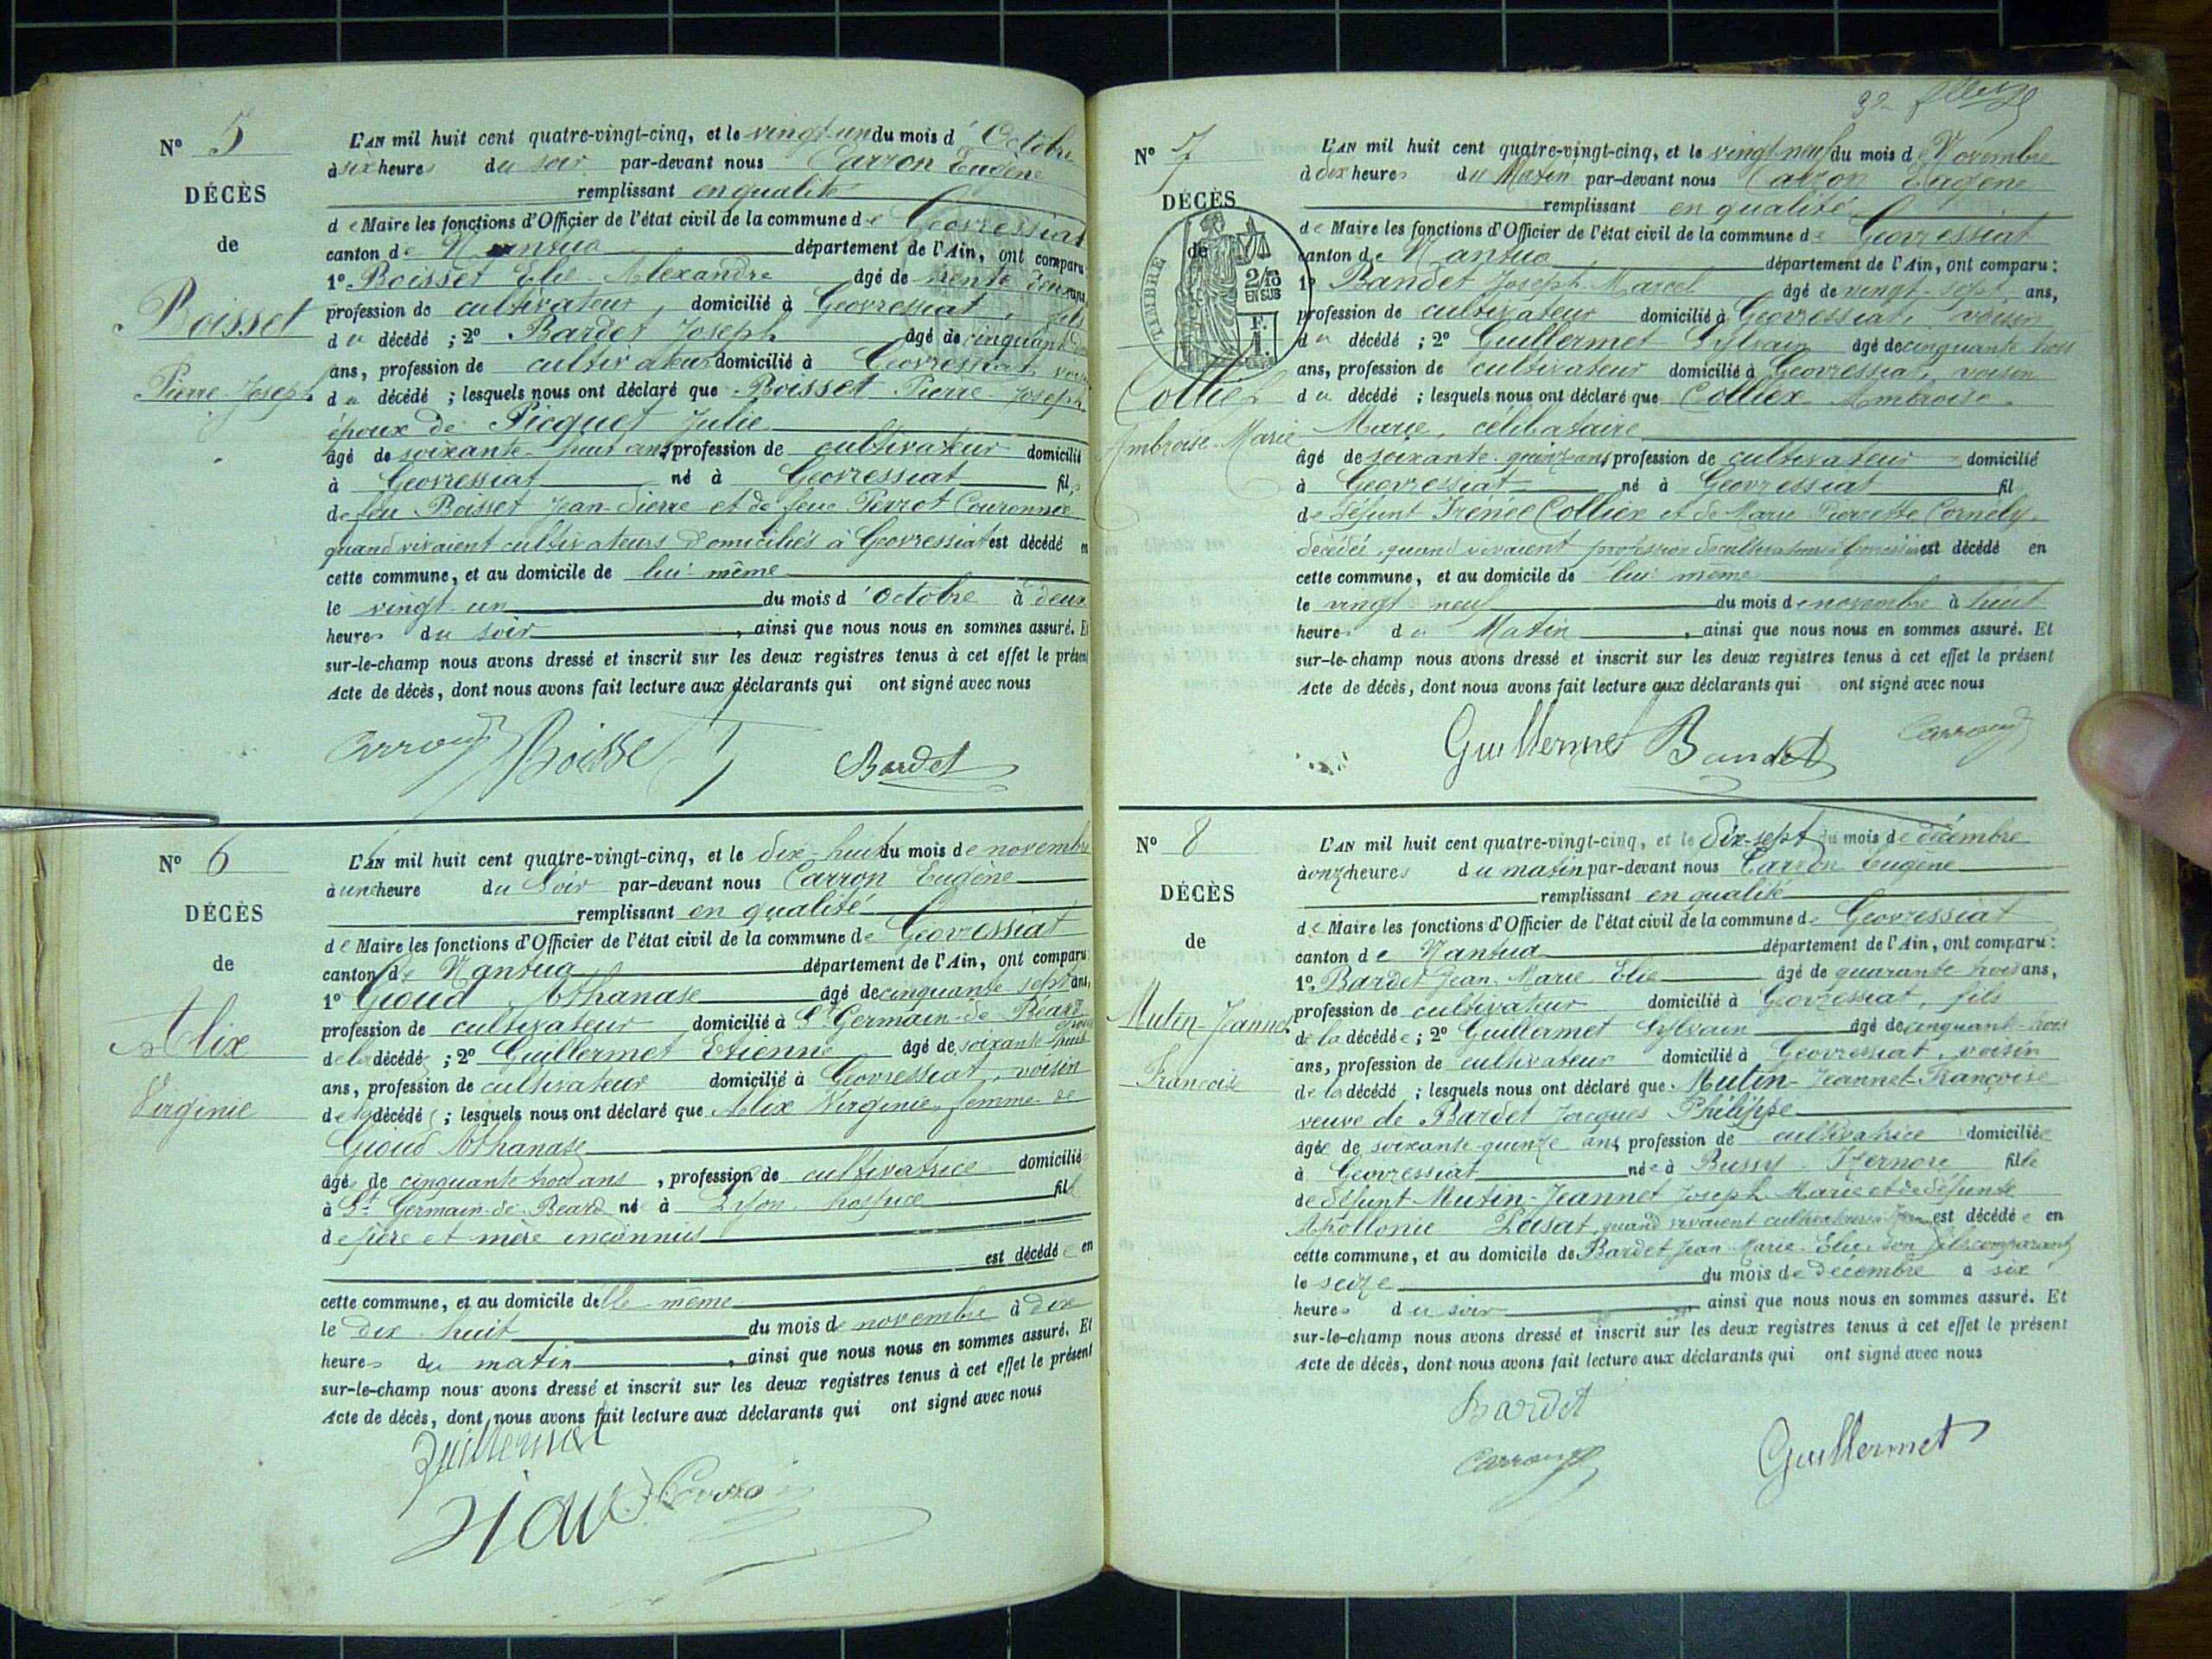 N° 5
DÉCÈS
de
Boisset
Pierre-Joseph
L'AN mil huit cent quatre-vingt-cinq, et le vingt-un du mois d'Octobre
à six heures du soir par-devant nous Carron Eugène
remplissant en qualité
de Maire les fonctions d'Officier de l'état civil de la commune de Geovressiat
canton de Nantua département de l'Ain, ont comparu
1° Boisset Elie-Alexandre âgé de trente deux ans,
profession de cultivateur, domicilié à Geovressiat, fils
du décédé ; 2° Bardet Joseph âgé de cinquante
ans, profession de cultivateur domicilié à Geovressiat, voisin
du décédé ; lesquels nous ont déclaré que Boisset Pierre-Joseph,
époux de Picquet Julie
âgé de soixante-huit ans, profession de cultivateur domicilié
à Geovressiat né à Geovressiat fils
de feu Boisset Jean-Pierre et de feue Perrot Couronnée
quand vivaient cultivateurs domiciliés à Geovressiat est décédé en
cette commune, et au domicile de lui-même
le vingt-un du mois d'Octobre à deux
heures du soir, ainsi que nous nous en sommes assuré. Et
sur-le-champ nous avons dressé et inscrit sur les deux registres tenus à cet effet le présent
Acte de décès, dont nous avons fait lecture aux déclarants qui ont signé avec nous
Carron Boisset Bardet
N° 6
DÉCÈS
de
Alix
Virginie
L'AN mil huit cent quatre-vingt-cinq, et le dix-huit du mois de novembre
à une heure du Soir par-devant nous Carron Eugène
remplissant en qualité
de Maire les fonctions d'Officier de l'état civil de la commune de Géovressiat
canton de Nantua département de l'Ain, ont comparu
1° Gioud Athanase âgé de cinquante-sept ans,
profession de cultivateur domicilié à St Germain-de-Béard époux
de la décédée ; 2° Guillermet Etienne âgé de soixante-huit
ans, profession de cultivateur domicilié à Geovressiat, voisin
de la décédée ; lesquels nous ont déclaré que Alix Virginie, femme de
Gioud Athanase
âgée de cinquante trois ans, profession de cultivatrice domiciliée
à St Germain-de-Beard né à Lyon hospice fil
de père et mère inconnus
est décédée en
cette commune, et au domicile d'elle-même
le dix-huit du mois de novembre à dix
heures du matin, ainsi que nous nous en sommes assuré. Et
sur-le-champ nous avons dressé et inscrit sur les deux registres tenus à cet effet le présent
Acte de décès, dont nous avons fait lecture aux déclarants qui ont signé avec nous
Guillermet
Carron
N° 7
DÉCÈS
de
TIMBRE
2/10
EN SUS
1 F.
Colliex
Ambroise-Marie
L'AN mil huit cent quatre-vingt-cinq, et le vingt-neuf du mois de Novembre
à dix heures du Matin par-devant nous Carron Eugène
remplissant en qualité
de Maire les fonctions d'Officier de l'état civil de la commune de Geovressiat
canton de Nantua département de l'Ain, ont comparu :
1° Bandet Joseph-Marcel âgé de vingt-sept ans,
profession de cultivateur domicilié à Geovressiat, voisin
du décédé ; 2° Guillermet Sylvain âgé de cinquante trois
ans, profession de cultivateur domicilié à Geovressiat, voisin
du décédé ; lesquels nous ont déclaré que Colliex Ambroise
Marie, célibataire
âgé de soixante-quinze ans, profession de cultivateur domicilié
à Geovressiat né à Geovressiat fil
de défunt Irénée Colliex et de Marie Pierrette Cornély
décédée, quand vivaient profession de cultivateurs à Geovressiat est décédé en
cette commune, et au domicile de lui-même
le vingt neuf du mois de novembre à huit
heures du Matin, ainsi que nous nous en sommes assuré. Et
sur-le-champ nous avons dressé et inscrit sur les deux registres tenus à cet effet le présent
Acte de décès, dont nous avons fait lecture aux déclarants qui ont signé avec nous
Guillermet Bandet Carron
N° 8
DÉCÈS
de
Mutin-Jeannet
Françoise
L'AN mil huit cent quatre-vingt-cinq, et le dix-sept du mois de décembre
à onze heures du matin par-devant nous Carron Eugène
remplissant en qualité
de Maire les fonctions d'Officier de l'état civil de la commune de Geovressiat
canton de Nantua département de l'Ain, ont comparu :
1° Bardet Jean-Marie Elie âgé de quarante trois ans,
profession de cultivateur domicilié à Geovressiat, fils
de la décédée ; 2° Guillermet Sylvain âgé de cinquante-trois
ans, profession de cultivateur domicilié à Geovressiat, voisin
de la décédé ; lesquels nous ont déclaré que Mutin-Jeannet-Françoise
veuve de Bardet Jacques Philippe
âgée de soixante-quinze ans, profession de cultivatrice domiciliée
à Geovressiat née à Bussy-Izernore fille
de défunt Mutin-Jeannet Joseph Marie et de défunte
Apollonie Lasat, quand vivaient cultivateurs est décédée en
cette commune, et au domicile de Bardet Jean-Marie-Elie, son fils comparant
le seize du mois de décembre à six
heures du soir, ainsi que nous nous en sommes assuré. Et
sur-le-champ nous avons dressé et inscrit sur les deux registres tenus à cet effet le présent
Acte de décès, dont nous avons fait lecture aux déclarants qui ont signé avec nous
Bardet
Carron Guillermet